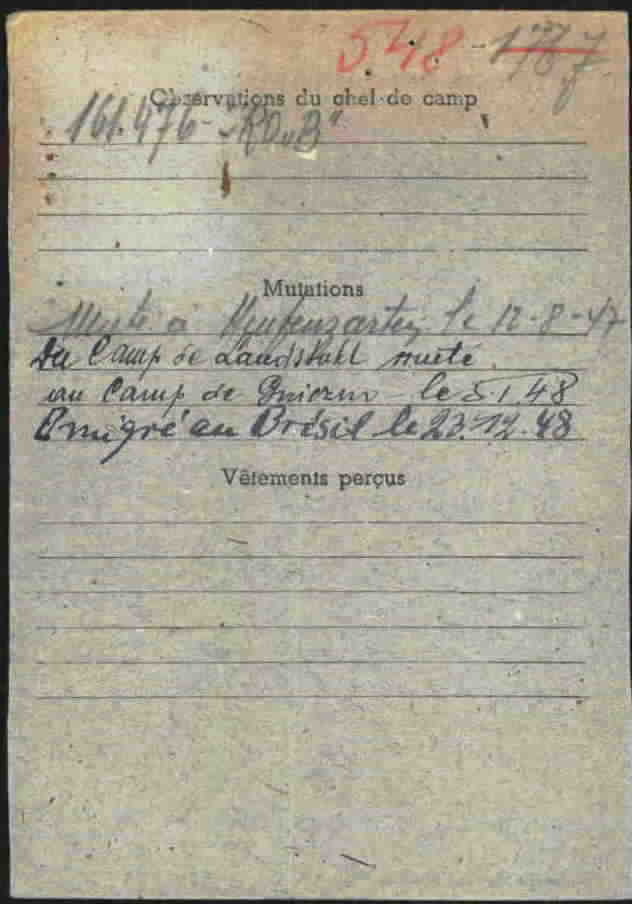 548 - 1787
Observations du chef de camp
161.476 - "RO„B"
Mutations
Muté à le 12-8-47
Du Camp de Landstuhl muté
au Camp de Gniezno le 5.1.48
Émigré au Brésil le 23.12.48
Vêtements perçus